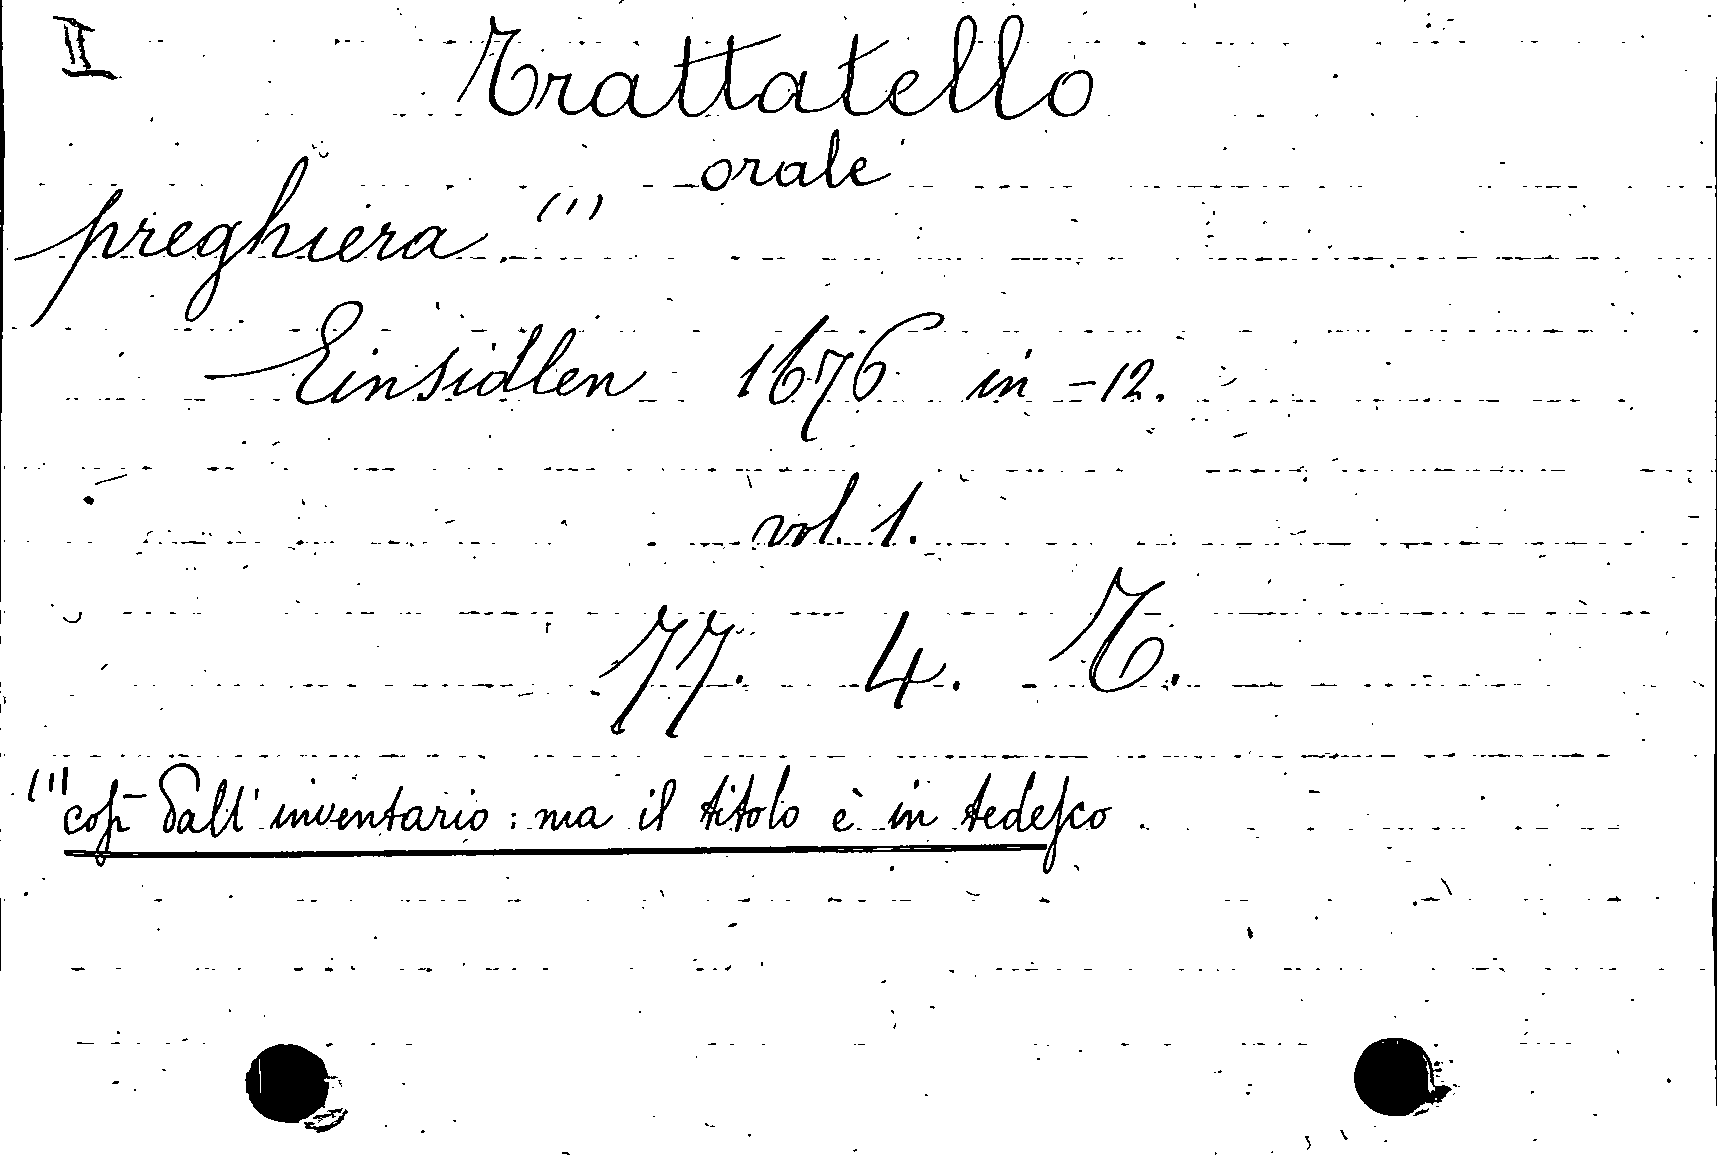 II
Trattatello
orale
preghiera (1)
Einsidlen 1676 in-12.
vol. 1.
77. 4. T.
(1) così dall'inventario: ma il titolo è in tedesco